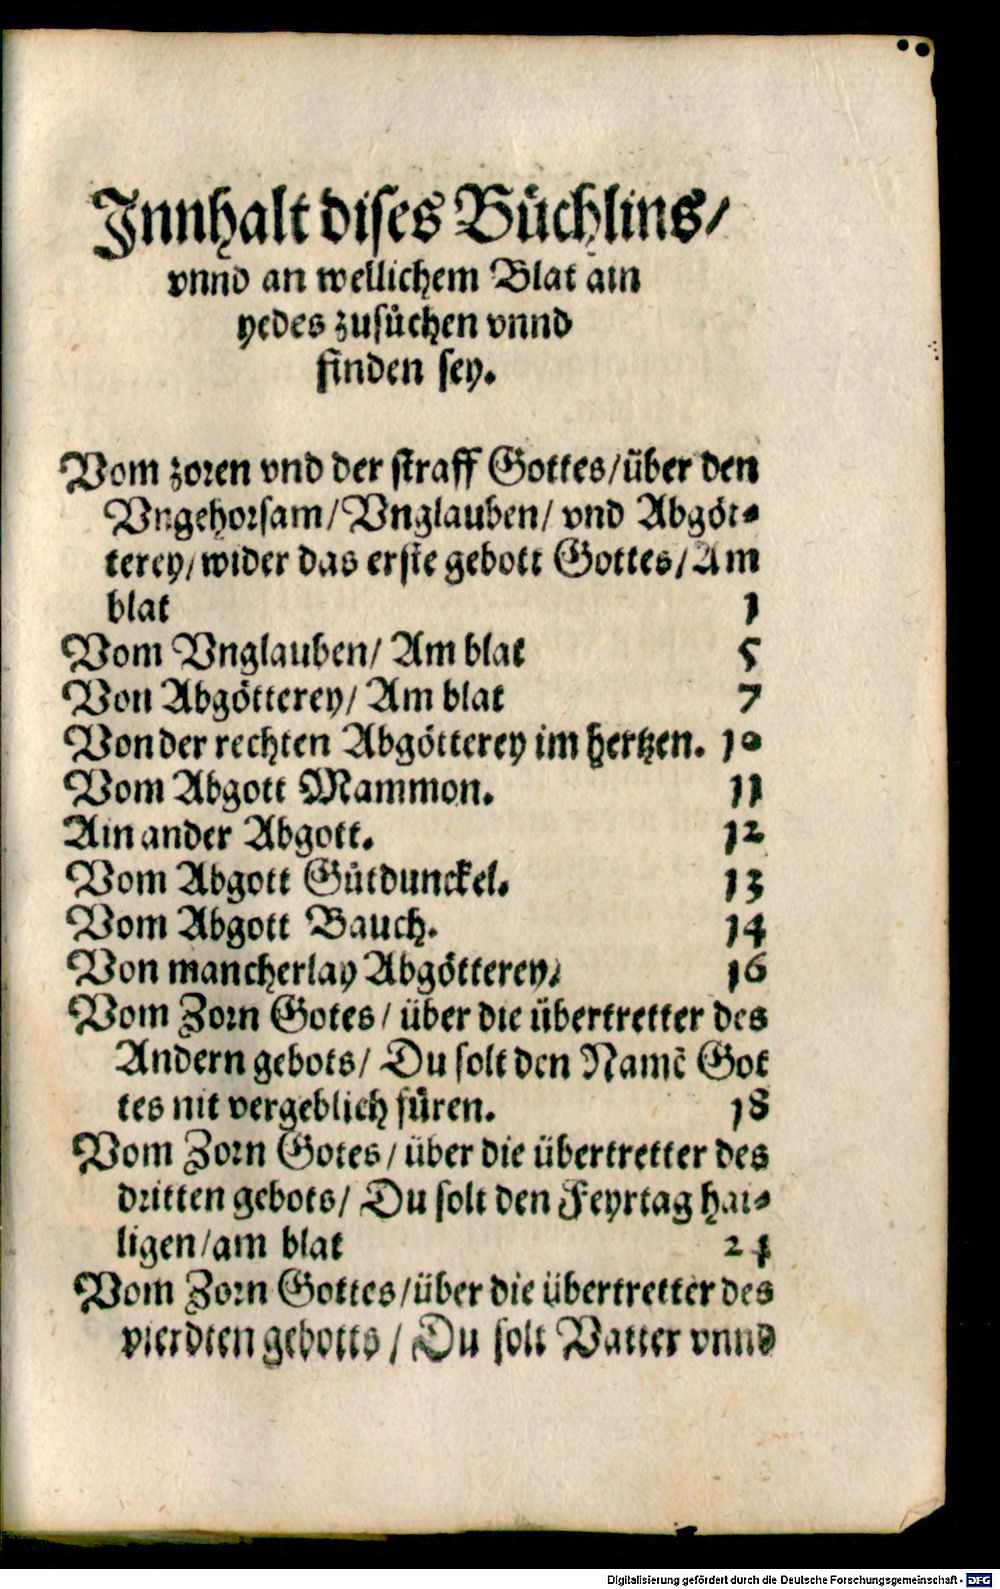 Innhalt dises Büchlins/
vnnd an wellichem Blat ain
yedes zusůchen vnnd
finden sey.
Vom zoren vnd der straff Gottes/über den
Vngehorsam/Vnglauben/ vnd Abgöt-
terey/wider das erste gebott Gottes/Am
blat 1
Vom Vnglauben/ Am blat 5
Von Abgötterey/ Am blat 7
Von der rechten Abgötterey im hertzen. 10
Vom Abgott Mammon. 11
Ain ander Abgott. 12
Vom Abgott Gůtdunckel. 13
Vom Abgott Bauch. 14
Von mancherlay Abgötterey/ 16
Vom Zorn Gotes/ über die übertretter des
Andern gebots/ Du solt den Namē Got
tes nit vergeblich füren. 18
Vom Zorn Gotes/ über die übertretter des
dritten gebots/ Du solt den Feyrtag hai-
ligen/am blat 24
Vom Zorn Gottes/über die übertretter des
vierdten gebotts/ Du solt Vatter vnnd
Digitalisierung gefördert durch die Deutsche Forschungsgemeinschaft - DFG